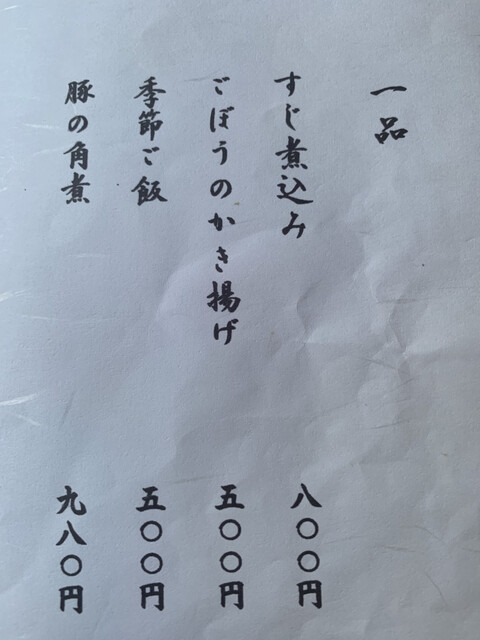 一品
すじ煮込み 八〇〇円
ごぼうのかき揚げ 五〇〇円
季節ご飯 五〇〇円
豚の角煮 九八〇円